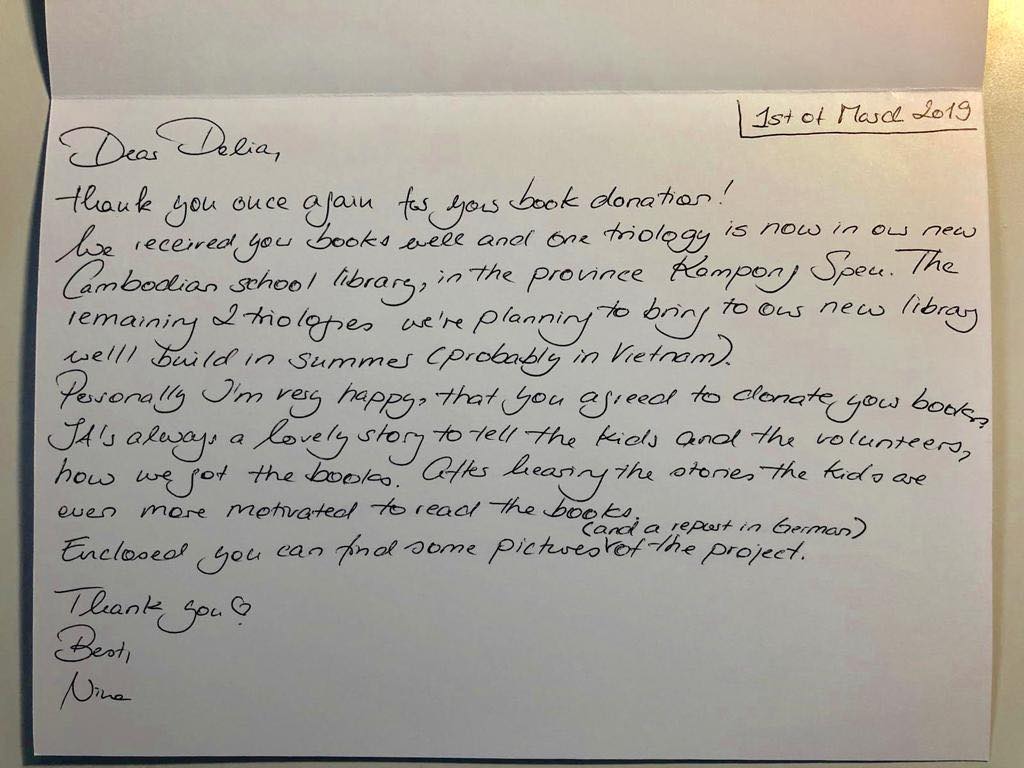 1st of March 2019
Dear Delia,
thank you once again for your book donation!
We received your books well and one triology is now in our new
Cambodian school library, in the province Kampong Speu. The
remaining 2 triologies we're planning to bring to our new library
we'll build in summer (probably in Vietnam).
Personally I'm very happy, that you agreed to donate your books,
It's always a lovely story to tell the kids and the volunteers,
how we got the books. After hearing the stories the kids are
even more motivated to read the books.
(and a report in German)
Enclosed you can find some pictures of the project.
Thank you♡
Best,
Nina